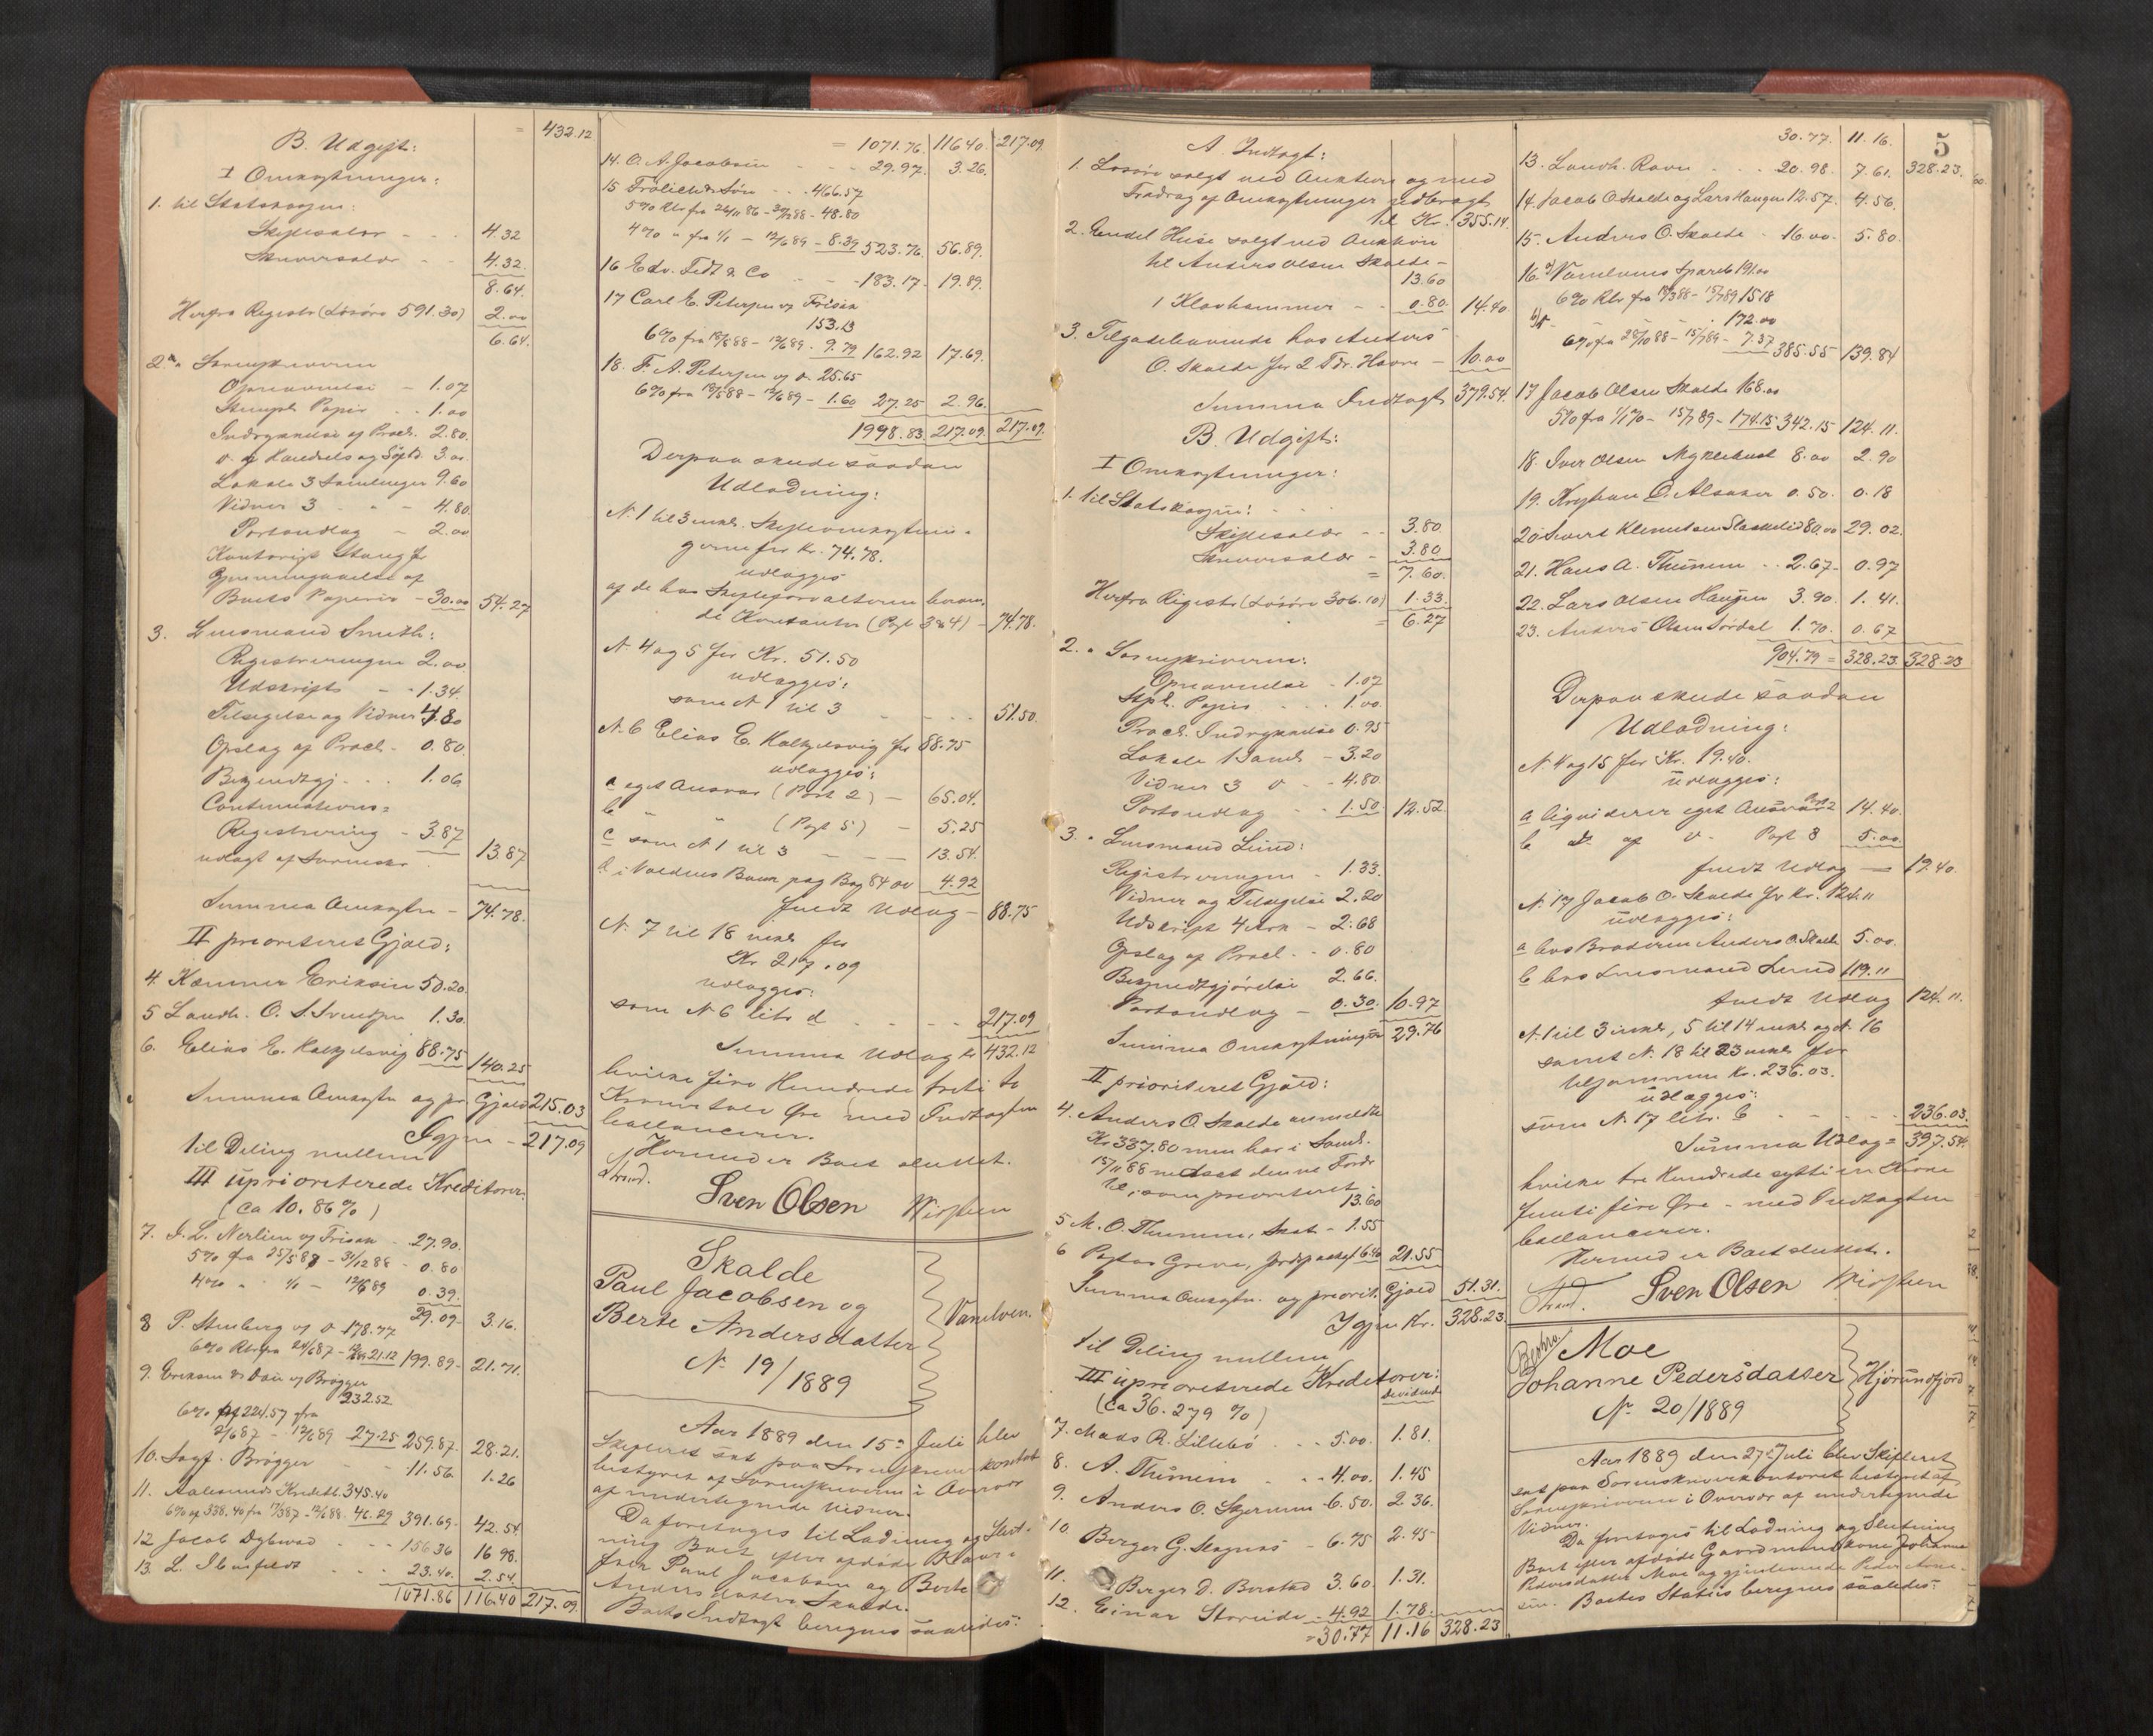 = 432.12
B. Udgift:
I Omkostninger:
1. til Statskassen:
Skiftesalær - - 4.32
Skriversalær - - 4.32
8.64
Herfra Registr. (Løsøre 591.30) 2.00
6.64
2. " Sorenskriveren
Opnævnelse - 1.07
Stempl. Papir - - 1.00
Indrykkelse af Procl. 2.80
3.00
Lokale 3 Samlinger 9.60
Vidner 3 - - 4.80
Portoudlæg - 2.00
Gjennemgaaelse af
Boets Papirer - 30.00 54.27
3. Lensmand Smith:
Registreringen 2.00
Udskrift - - 1.34
Tilsigelse og Vidner 4.80
Opslag af Procl. - 0.80
Bekjendtgj. . . 1.06
Continuations=
Registrering - 3.87
13.87
Summa Omkostn - 74.78.
II prioriteret Gjæld:
4. Kæmner Eriksen 50.20.
5 Landh. O. S. Svendsen 1.30.
6. Elias E. Kalkjelsvig 88.75 140.25
Summa Omkostn og pr. Gjæld 215.03
Igjen - 217.09
til Deling mellem
III upriorierede Kreditorer.
(ca 10.86 %)
7. J. L. Nerlien og Frisak - 27.90.
5% fra 25/5 87 - 31/12 88 - 0.80
4% " 1/1 - 12/6 89 0.39.
29.09 - 3.16.
8 P. Stenberg og 178.77
199.89 - 21.71.
232.52
6% af 224.57 fra
2/6 87 - 12/6 89 27.25 259.87. 28.21.
10. Sagf. Brøgger - - 11.56. 1.26
11. Aalesunds Kreditb. 345.40
46.29 391.69 - 42.54.
12 Jacob Dybwad - - - 156.36 16.98.
13. L. Ibenfeldt - - - 23.40. 2.54.
1071.86 116.40 217.09.
= 1071.76. 116.40. 217.09.
14. O. A. Jacobsen - - - 29.97. 3.26.
15 Frølich & Søn - - - 466.57
48.80
4% " fra 1/1 - 12/6 89 - 8.39 523.76. 56.89.
16 Edv. Fett & Co - - 183.17 - 19.89.
17 Carl E. Petersen og Frisak
153.13
6% fra 18/5 88 - 12/6 89 - 9.79 162.92 17.69.
18. F. A. Petersen og d. 25.65
6% fra 18/5 88 - 12/6 89 - 1.60 27.25 2.96.
1998.83. 217.09. 217.09.
Derpaa skede saadan
Udlodning:
N. 1 til 3 inkl. Skifteomkostnin-
gerne for Kr. 74.78.
udlægges
af de hos Skifteforvalteren beroen-
de Contanter (Post 3 & 4) - 74.78.
N. 4 og 5 for Kr. 51.50
udlægges:
som N 1 til 3 - - - - 51.50.
N. 6 Elias E. Kalkjelsvig for 88.75
udlægges:
a eget Ansvar (Post 2) - 65.04.
b " " (Post 5) - 5.25
c som N 1 til 3 - - - 13.54.
d i Voldens Bank paa Bog 8400 4.92
fuldt Udlæg - 88.75
N. 7 til 18 inkl for
Kr. 217.09
udlægges:
som N 6 litr d . - - - 217.09
Summa Udlæg kr 432.12
hvilke fire Hundrede treti to
Kroner tolv Øre med Indtægten
ballancerer.
Hermed er Boet sluttet.
Strand.
Sven Olsen
Skalde
Paul Jacobsen og
Berte Andersdatter
N. 19/1889
Vanelven.
Aar 1889 den 15. Juli blev
Skifteret sat paa Sorenskriverkontoret
bestyret af Sorenskriveren i Overvær
af undertegnede Vidner.
Da foretoges til Lodning og Slut-
ning Boet efter afdøde
Paul Jacobsen og Berte
Andersdatter Skalde.
Boets Indtægt beregnes saaledes:
5
A. Indtægt:
1. Løsøre solgt ved Auktion og med
Fradrag af Omkostninger udbragt
til Kr. 355.14.
2. Gammel Huse solgt ved Auktion
til Anders Olsen Skalde -
13.60
1 Klavhammer - - 0.80 14.40.
3. Tilgodehavende hos Anders
O. Skalde for 2 Tdr. Havre - 10.00
Summa Indtægt 379.54.
B. Udgift:
I Omkostninger:
1. til Statskassen: - -
Skiftesalær - - 3.80
Skriversalær - 3.80
= 7.60.
Herfra Registr. (Løsøre 306.10) 1.33.
= 6.27
2. " Sorenskriveren:
Opnævnelse - 1.07
Stpl. Papir - - - 1.00.
Procl. Indrykkelse 0.95
Lokale 1 Saml. - 3.20
Vidner 3 d - 4.80
Portoudlæg - - 1.50 12.52
3. " Lensmand Lund:
Registreringen - 1.33.
Vidner og Tilsigelse 2.20
Udskrift 4 Ark - 2.68
Opslag af Procl. - - 0.80
Bekjendtgjørelse 2.66.
Portoudlæg - 0.30. 10.97
Summa Omkostninger 29.76
II prioriteret Gjæld:
4. Anders O. Skalde anmeldte
Kr. 387.80 men har i Saml.
15/11 88 nedsat denne Fordr.
til, som prioriteret -
13.60
5 M. O. Thunem, Skat - 1.55
6 Pastor Greve, 6.40 21.55
Summa Omkostn. og priorit. Gjæld 51.31.
Igjen Kr. 328.23
til Deling mellem
III upriorierede Kreditorer:
(ca 36.279 %) dividende
7. Mads R. Lillebø - - - 5.00. 1.81.
8. A. Thunem - - - 4.00. 1.45
9. Anders O. Skjerven - 6.50. 2.36.
10. Berger G. Stegnæs - 6.75 2.45
11. Berger D. Berstad 3.60. 1.31.
12. Einar Storeide - 4.92 1.78.
= 30.77 11.16 328.23
30.77. 11.16.
13. Landh. Ravn - - - 20.98. 7.61. 328.23.
14. Jacob O. Skalde og Lars Haugen 12.57. 4.56.
15. Anders O. Skalde - 16.00. 5.80.
16. a) Vanelvens Spareb. 191.00
15.18
b) - 172.00
7.37 385.55 139.84
17 Jacob Olsen Skalde 168.00
5% fra 1/1 70 - 15/7 89 - 174.15 342.15 124.11.
18. Iver Olsen Myklebust 8.00 2.90
19. O. Alsaker 0.50. 0.18
20 Sivert Klemetsen 80.00 29.02.
21. Hans A. Thunem - - 2.67 - 0.97
22. Lars Olsen Haugen 3.90. 1.41.
23. Anders Olsen Sørdal 1.70. 0.67
904.79 = 328.23. 328.23
Derpaa skede saadan
Udlodning:
N. 4 og 15 for Kr. 19.40.
udlægges:
a liqviderer eget Ansvar Post 2 14.40.
b d. af d - Post 8 5.00
fuldt Udlæg - 19.40.
N. 17 Jacob O. Skalde for Kr. 124.11
udlægges:
a hos Broderen Anders O. Skalde 5.00.
b hos Lensmand Lund 119.11
fuldt Udlæg 124.11.
N. 1 til 3 inkl., 5 til 14 inkl og N. 16
samt N. 18 til 23 inkl for
tilsammen Kr. 236.03.
udlægges:
som N. 17 litr. b - - - - 236.03.
Summa Udlæg = 397.54.
hvilke tre Hundrede sytti en Krone
femti fire Øre - med Indtægten
ballancerer.
Hermed er Boet sluttet.
Strand.
Sven Olsen
Moe
Johanne Pedersdatter
N. 20/1889
Hjørundfjord
Aar 1889 den 27. Juli blev Skifteret
sat paa Sorenskriverkontoret bestyret af
Sorenskriveren i Overvær af undertegnede
Vidner.
Da foretoges til Lodning og Slutning
Boet efter afdøde Gaardmandskone Johanne
Pedersdatter Moe og gjenlevende
Boets Status beregnes saaledes: